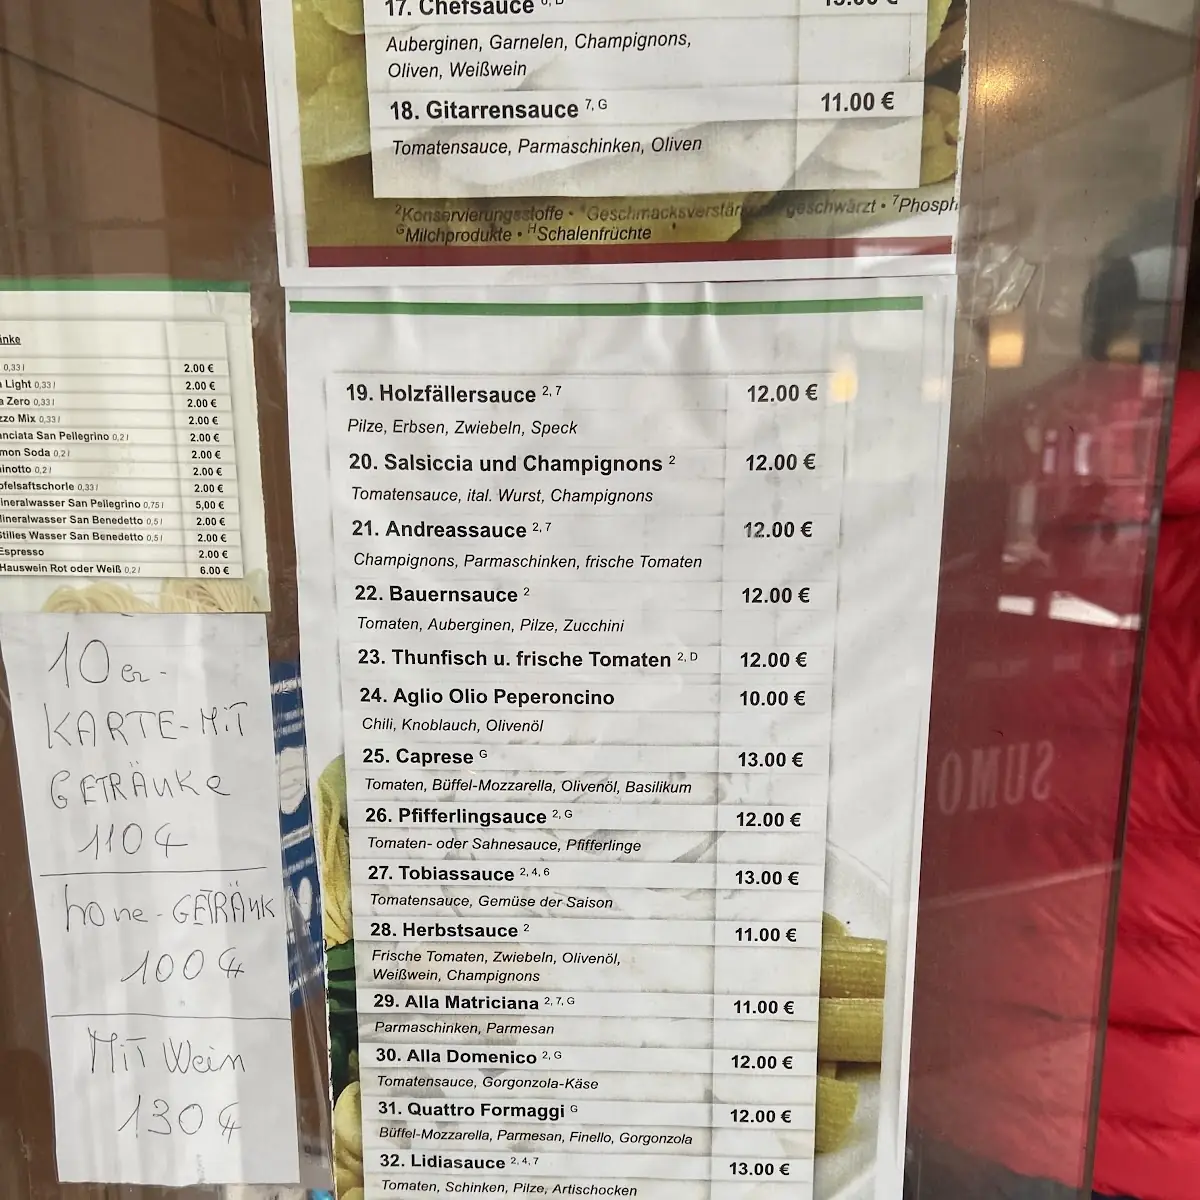 17. Chefsauce
Auberginen, Garnelen, Champignons,
Oliven, Weißwein
18. Gitarrensauce 7, G 11.00 €
Tomatensauce, Parmaschinken, Oliven
2Konservierungsstoffe • Geschmacksverstär geschwärzt • 7Phosph
GMilchprodukte • HSchalenfrüchte
änke
0,33 l 2.00 €
Light 0,33 l 2.00 €
a Zero 0,33 l 2.00 €
zzo Mix 0,33 l 2.00 €
anciata San Pellegrino 0,2 l 2.00 €
mon Soda 0,2 l 2.00 €
inotto 0,2 l 2.00 €
pfelsaftschorle 0,33 l 2.00 €
ineralwasser San Pellegrino 0,75 l 5,00 €
lineralwasser San Benedetto 0,5 l 2.00 €
Stilles Wasser San Benedetto 0,5 l 2.00 €
Espresso 2.00 €
Hauswein Rot oder Weiß 0,2 l 6.00 €
10 er-
KARTE-MiT
GETRÄNKe
110 €
hone-GETRÄNK
100 €
MiT Wein
130 €
19. Holzfällersauce 2, 7 12.00 €
Pilze, Erbsen, Zwiebeln, Speck
20. Salsiccia und Champignons 2 12.00 €
Tomatensauce, ital. Wurst, Champignons
21. Andreassauce 2, 7 12.00 €
Champignons, Parmaschinken, frische Tomaten
22. Bauernsauce 2 12.00 €
Tomaten, Auberginen, Pilze, Zucchini
23. Thunfisch u. frische Tomaten 2, D 12.00 €
24. Aglio Olio Peperoncino 10.00 €
Chili, Knoblauch, Olivenöl
25. Caprese G 13.00 €
Tomaten, Büffel-Mozzarella, Olivenöl, Basilikum
26. Pfifferlingsauce 2, G 12.00 €
Tomaten- oder Sahnesauce, Pfifferlinge
27. Tobiassauce 2, 4, 6 13.00 €
Tomatensauce, Gemüse der Saison
28. Herbstsauce 2 11.00 €
Frische Tomaten, Zwiebeln, Olivenöl,
Weißwein, Champignons
29. Alla Matriciana 2, 7, G 11.00 €
Parmaschinken, Parmesan
30. Alla Domenico 2, G 12.00 €
Tomatensauce, Gorgonzola-Käse
31. Quattro Formaggi G 12.00 €
Büffel-Mozzarella, Parmesan, Finello, Gorgonzola
32. Lidiasauce 2, 4, 7 13.00 €
Tomaten, Schinken, Pilze, Artischocken
SUMO